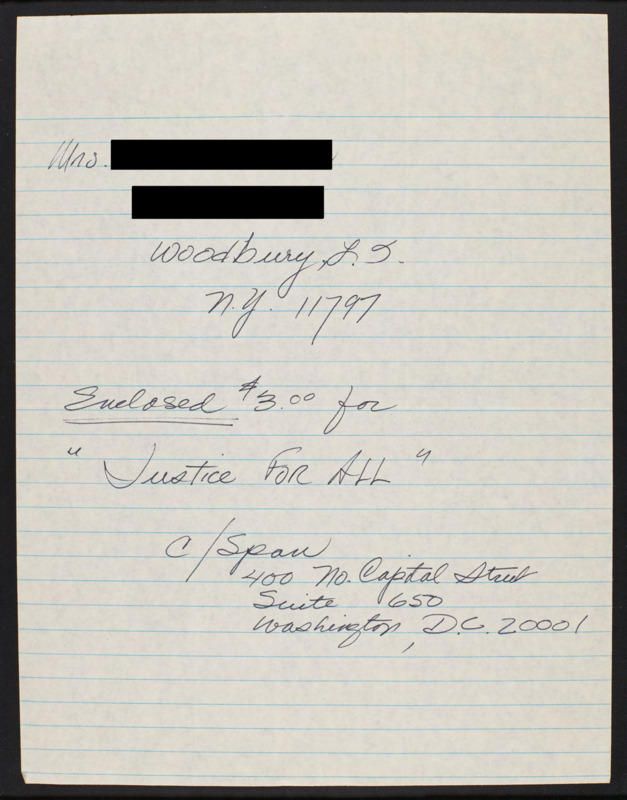 Mrs.
Woodbury, L.I.
N.Y. 11797
Enclosed $3.00 for
"Justice FOR ALL"
C/Span
400 No. Capital Street
Suite 650
Washington, D.C. 20001